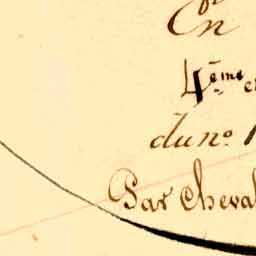 En
4ème
du no. 1
Par Cheval